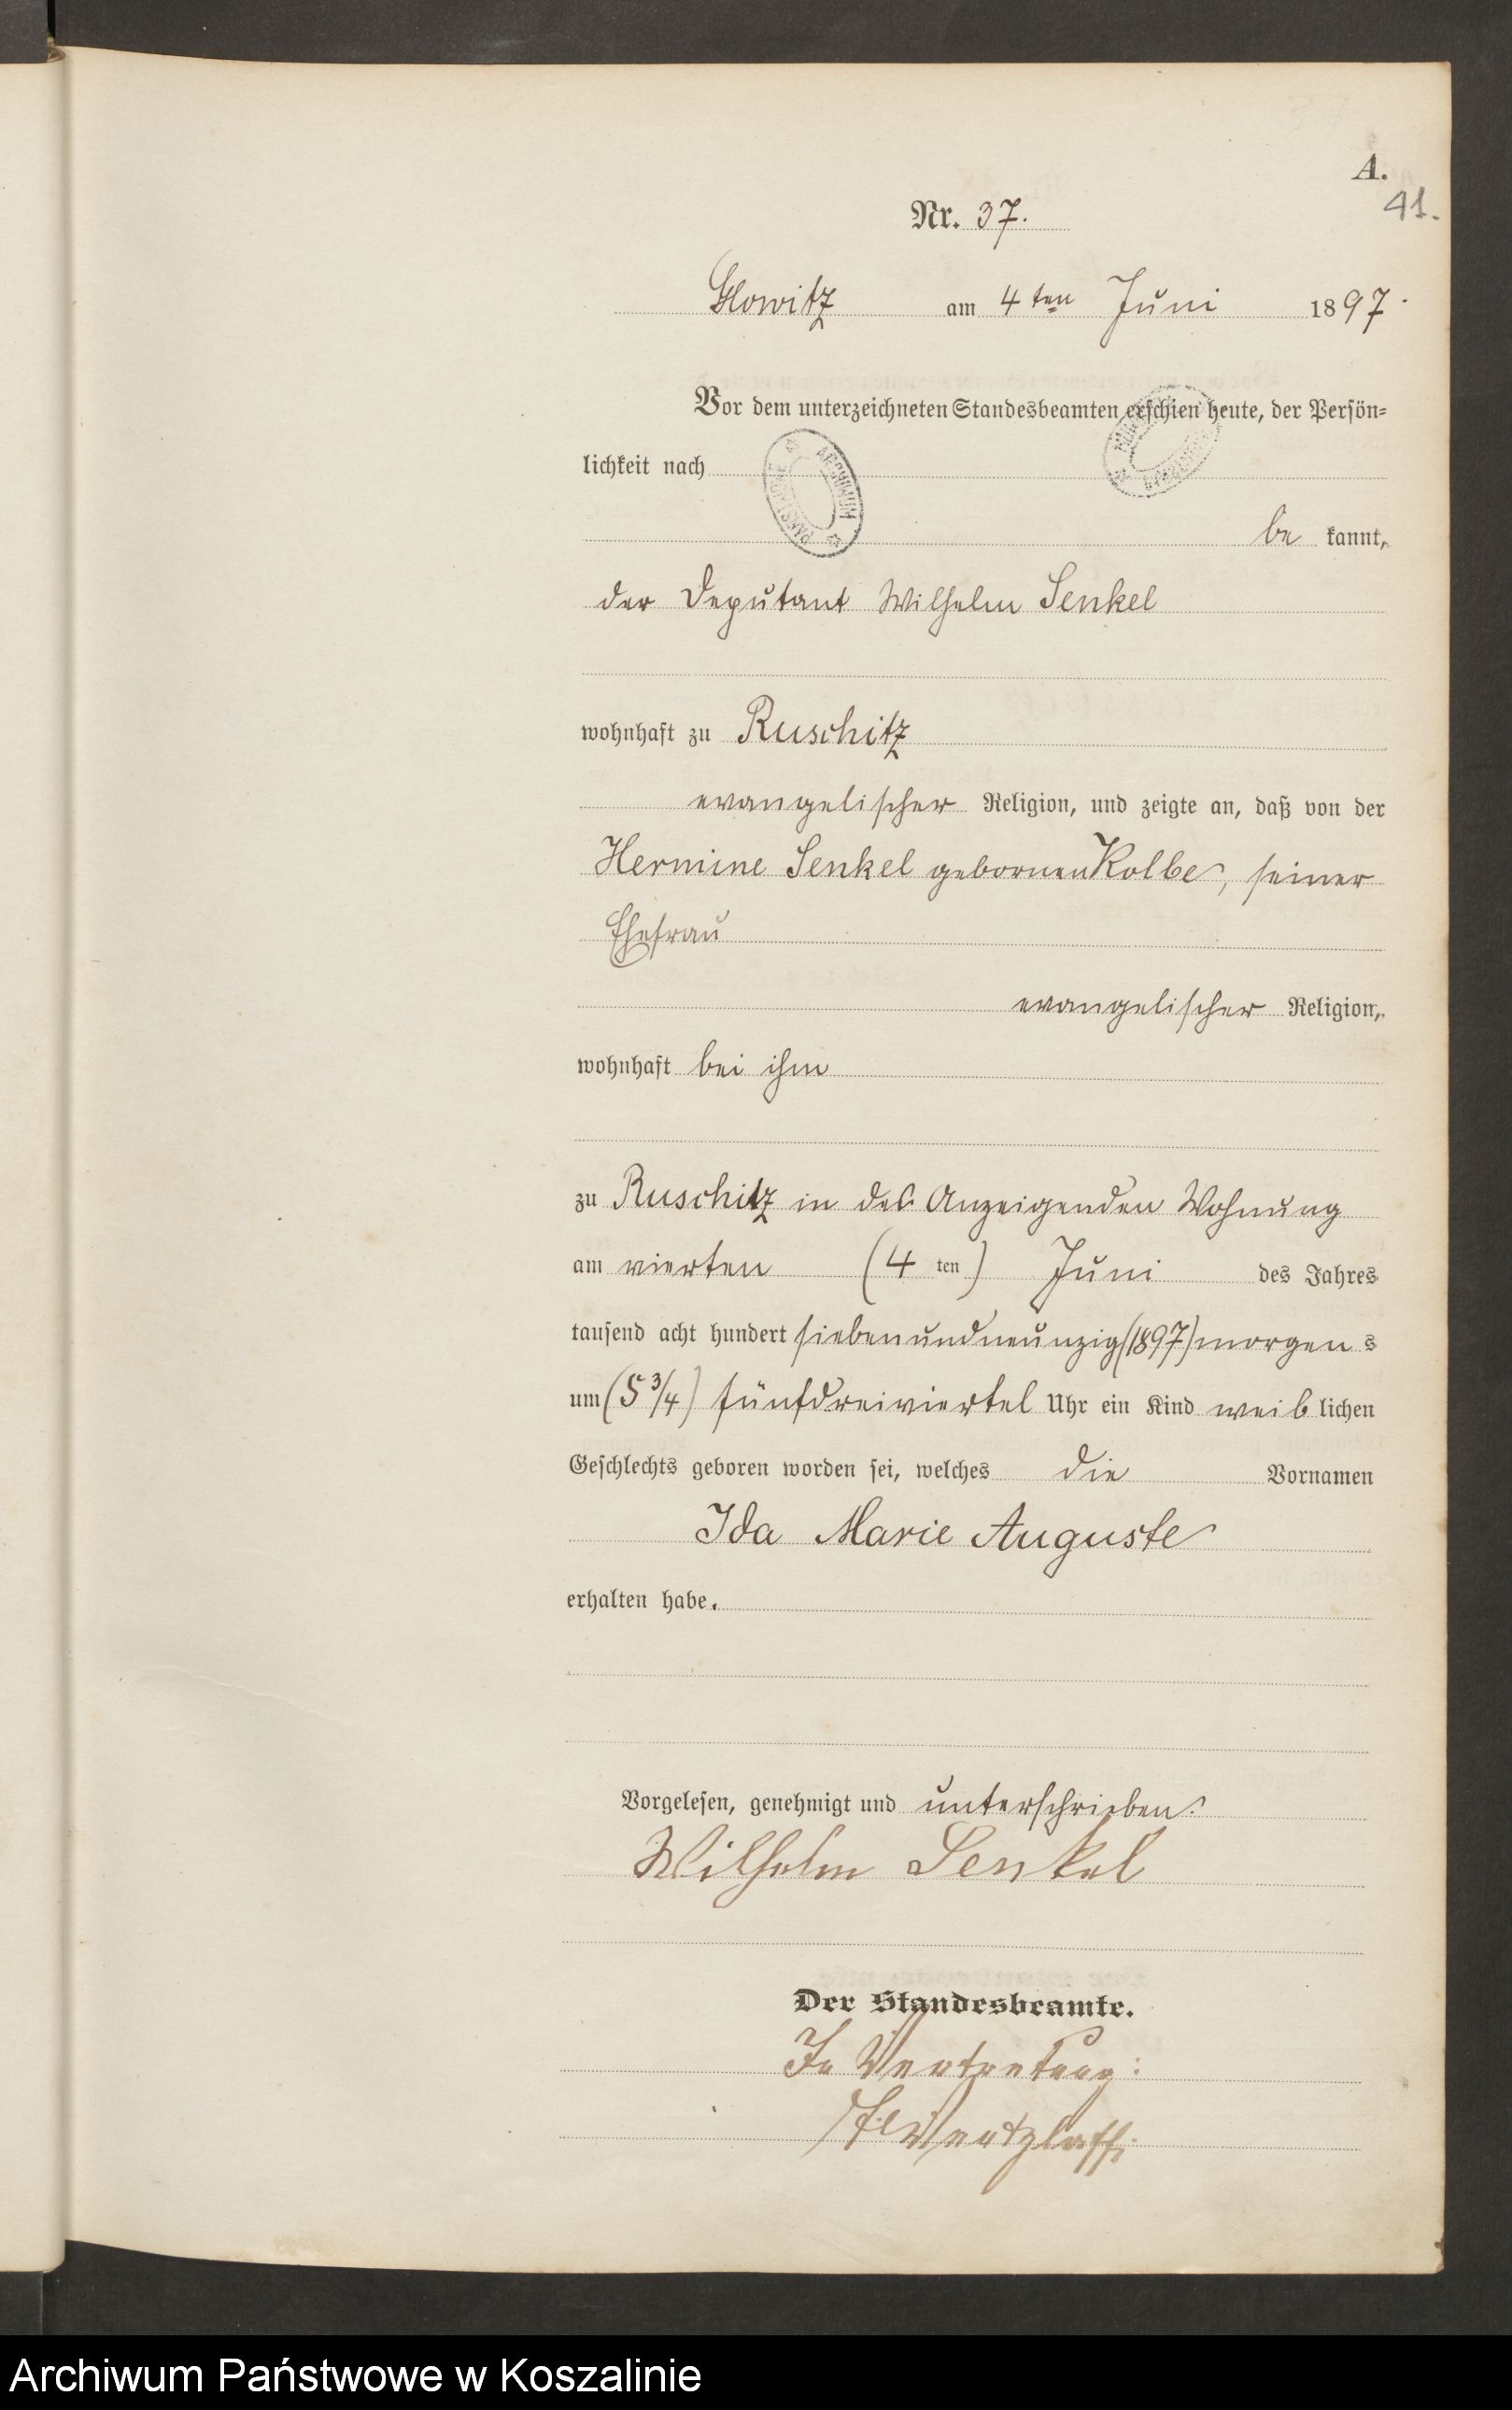 A.
41.
Nr. 37.
Glowitz am 4ten Juni 1897.
Vor dem unterzeichneten Standesbeamten erschien heute, der Persön-
lichkeit nach
be kannt,
der Deputant Wilhelm Senkel
wohnhaft zu Ruschitz
evangelischer Religion, und zeigte an, daß von der
Hermine Senkel gebornen Kolbe, seiner
Ehefrau
evangelischer Religion,
wohnhaft bei ihm
zu Ruschitz in des Anzeigenden Wohnung
am vierten (4 ten) Juni des Jahres
tausend acht hundert siebenundneunzig (1897) morgens
um (5 3/4) fünfdreiviertel Uhr ein Kind weiblichen
Geschlechts geboren worden sei, welches die Vornamen
Ida Marie Auguste
erhalten habe.
Vorgelesen, genehmigt und unterschrieben.
Wilhelm Senkel
Der Standesbeamte.
In Vertretung:
Wentzlaff.
ARCHIWUM PAŃSTWOWE
Archiwum Państwowe w Koszalinie